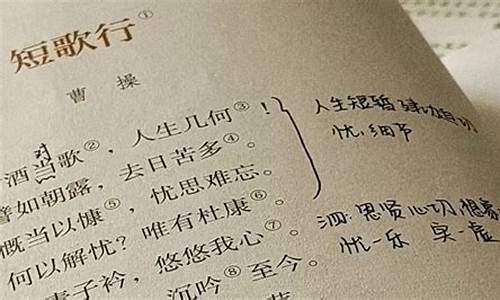 短歌行①
曹操
酒当歌②，人生几何③！
对
譬如朝露，去日苦多④。
慨当以慷⑤，忧思难忘。
何以解忧？唯有杜康⑥。
青子衿，悠悠我心⑦。
沉吟⑧至今。
人生短暂 建功
忧：细节
泗 思贤心切 想
忧一乐 实一虚